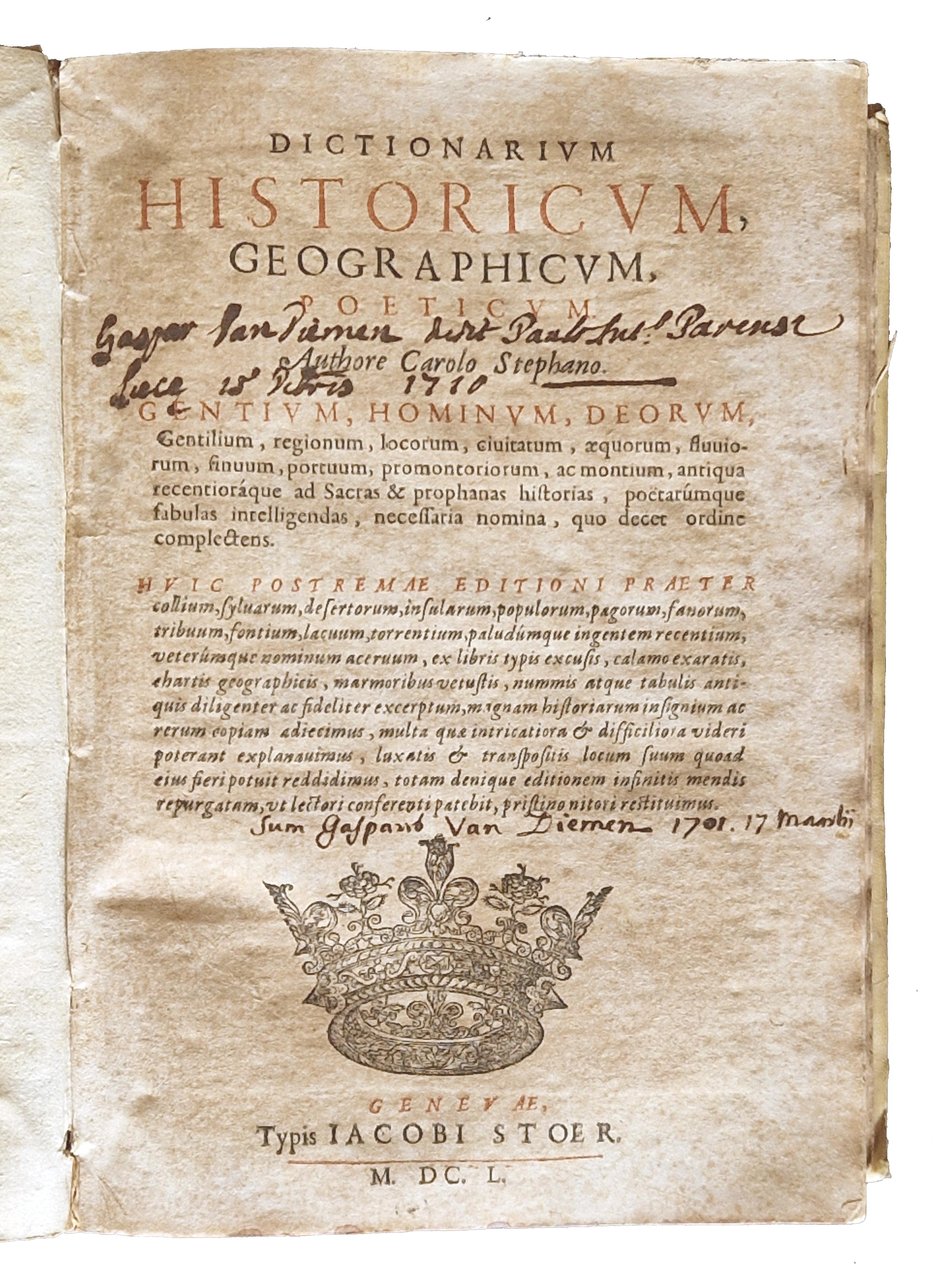 DICTIONARIVM
HISTORICVM,
GEOGRAPHICVM,
POETICVM
Gaspar Van Diemen dedit
Authore Carolo Stephano.
18 1710
GENTIVM, HOMINVM, DEORVM,
Gentilium, regionum, locorum, ciuitatum, æquorum, fluuio-
rum, ſinuum, portuum, promontoriorum, ac montium, antiqua
recentioráque ad Sacras & prophanas hiſtorias, poëtarúmque
fabulas intelligendas, neceſſaria nomina, quo decet ordine
complectens.
HVIC POSTREMAE EDITIONI PRAETER
collium, ſyluarum, deſertorum, inſularum, populorum, pagorum, fanorum,
tribuum, fontium, lacuum, torrentium, paludúmque ingentem recentium,
veterúmque nominum aceruum, ex libris typis excuſis, calamo exaratis,
chartis geographicis, marmoribus vetuſtis, nummis atque tabulis anti-
quis diligenter ac fideliter excerptum, magnam hiſtoriarum inſignium ac
rerum copiam adiecimus, multa quæ intricatiora & difficiliora videri
poterant explanauimus, luxatis & tranſpoſitis locum ſuum quoad
eius fieri potuit reddidimus, totam denique editionem infinitis mendis
repurgatam, vt lectori conferenti patebit, priſtino nitori reſtituimus.
Sum Gasparis Van Diemen 1701. 17
GENEVAE,
Typis IACOBI STOER.
M. DC. L.